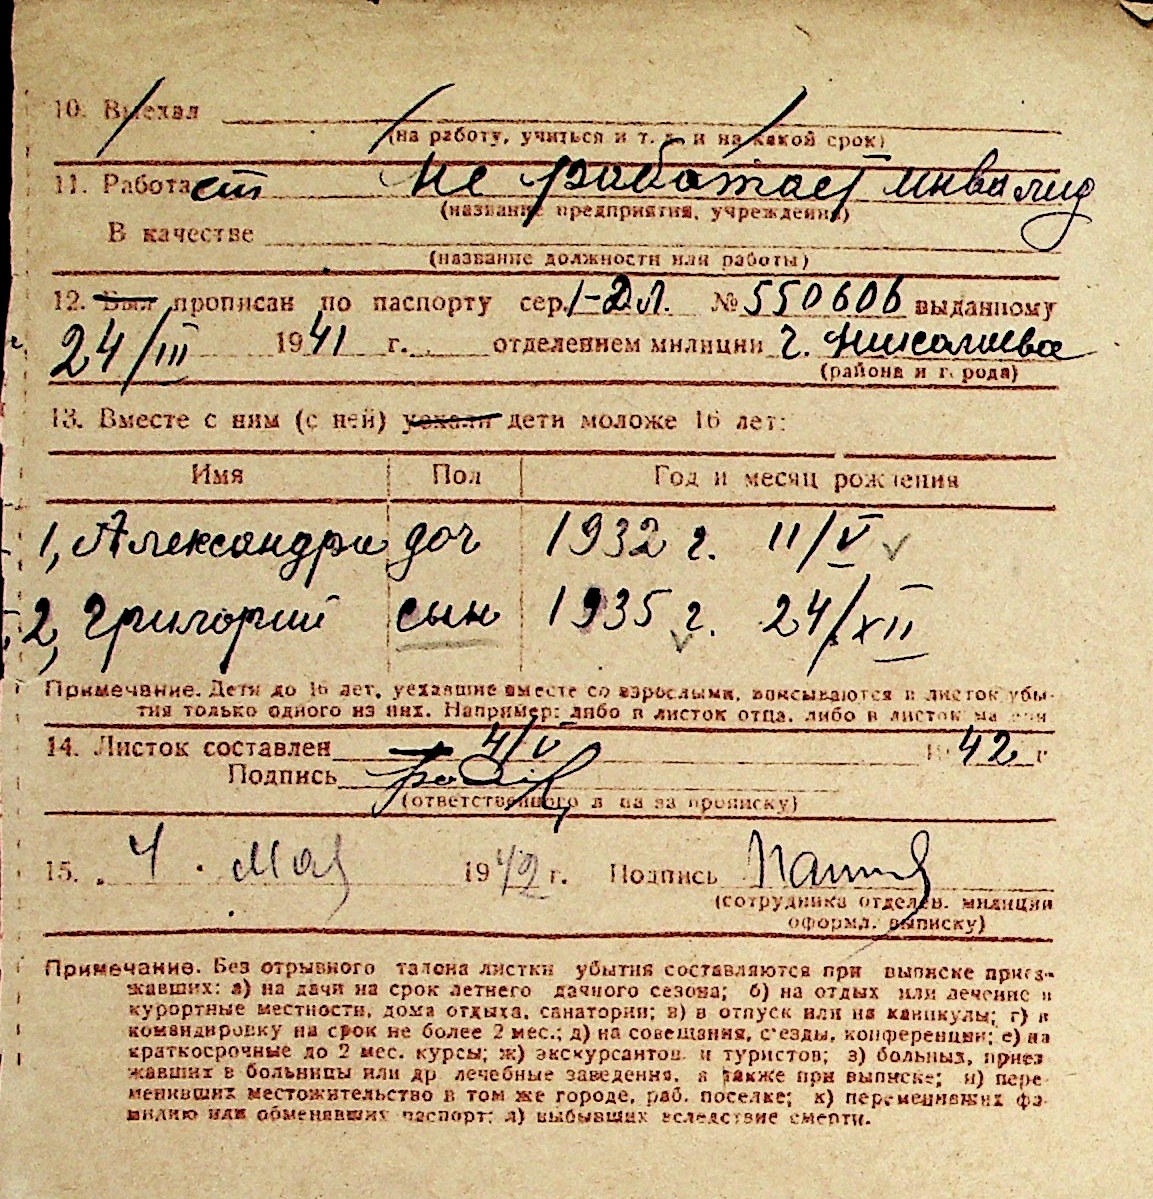 10. Выехал
(на работу, учиться и т. д. и на какой срок)
11. Работает не работает инвалид
(название предприятия, учреждения)
В качестве
(название должности или работы)
12. Был прописан по паспорту сер. I-ДЛ. № 550606 выданному
24/III 1941 г. отделением милиции г.
(района и города)
13. Вместе с ним (с ней) уехали дети моложе 16 лет:
Имя Пол Год и месяц рождения
1, Александра доч 1932 г. 11/V
2, Григорий сын 1935 г. 24/XII
Примечание. Дети до 16 лет, уехавшие вместе со взрослыми, вписываются в листок убы-
тия только одного из них. Например: либо в листок отца, либо в листок матери
14. Листок составлен 4/V 1942 г
Подпись
(ответственного лица за прописку)
15. 4. Мая 1942 г. Подпись
(сотрудника отделен. милиции
оформл. выписку)
Примечание. Без отрывного талона листки убытия составляются при выписке приез-
жавших: а) на дачи на срок летнего дачного сезона; б) на отдых или лечение в
курортные местности, дома отдыха, санатории; в) в отпуск или на каникулы; г) в
командировку на срок не более 2 мес.; д) на совещания, с'езды, конференции; е) на
краткосрочные до 2 мес. курсы; ж) экскурсантов и туристов; з) больных, приез
жавших в больницы или др лечебные заведения, а также при выписке; и) пере
менивших местожительство в том же городе, раб. поселке; к) переменивших фа-
милию или обменявших паспорт; л) выбывших вследствие смерти.